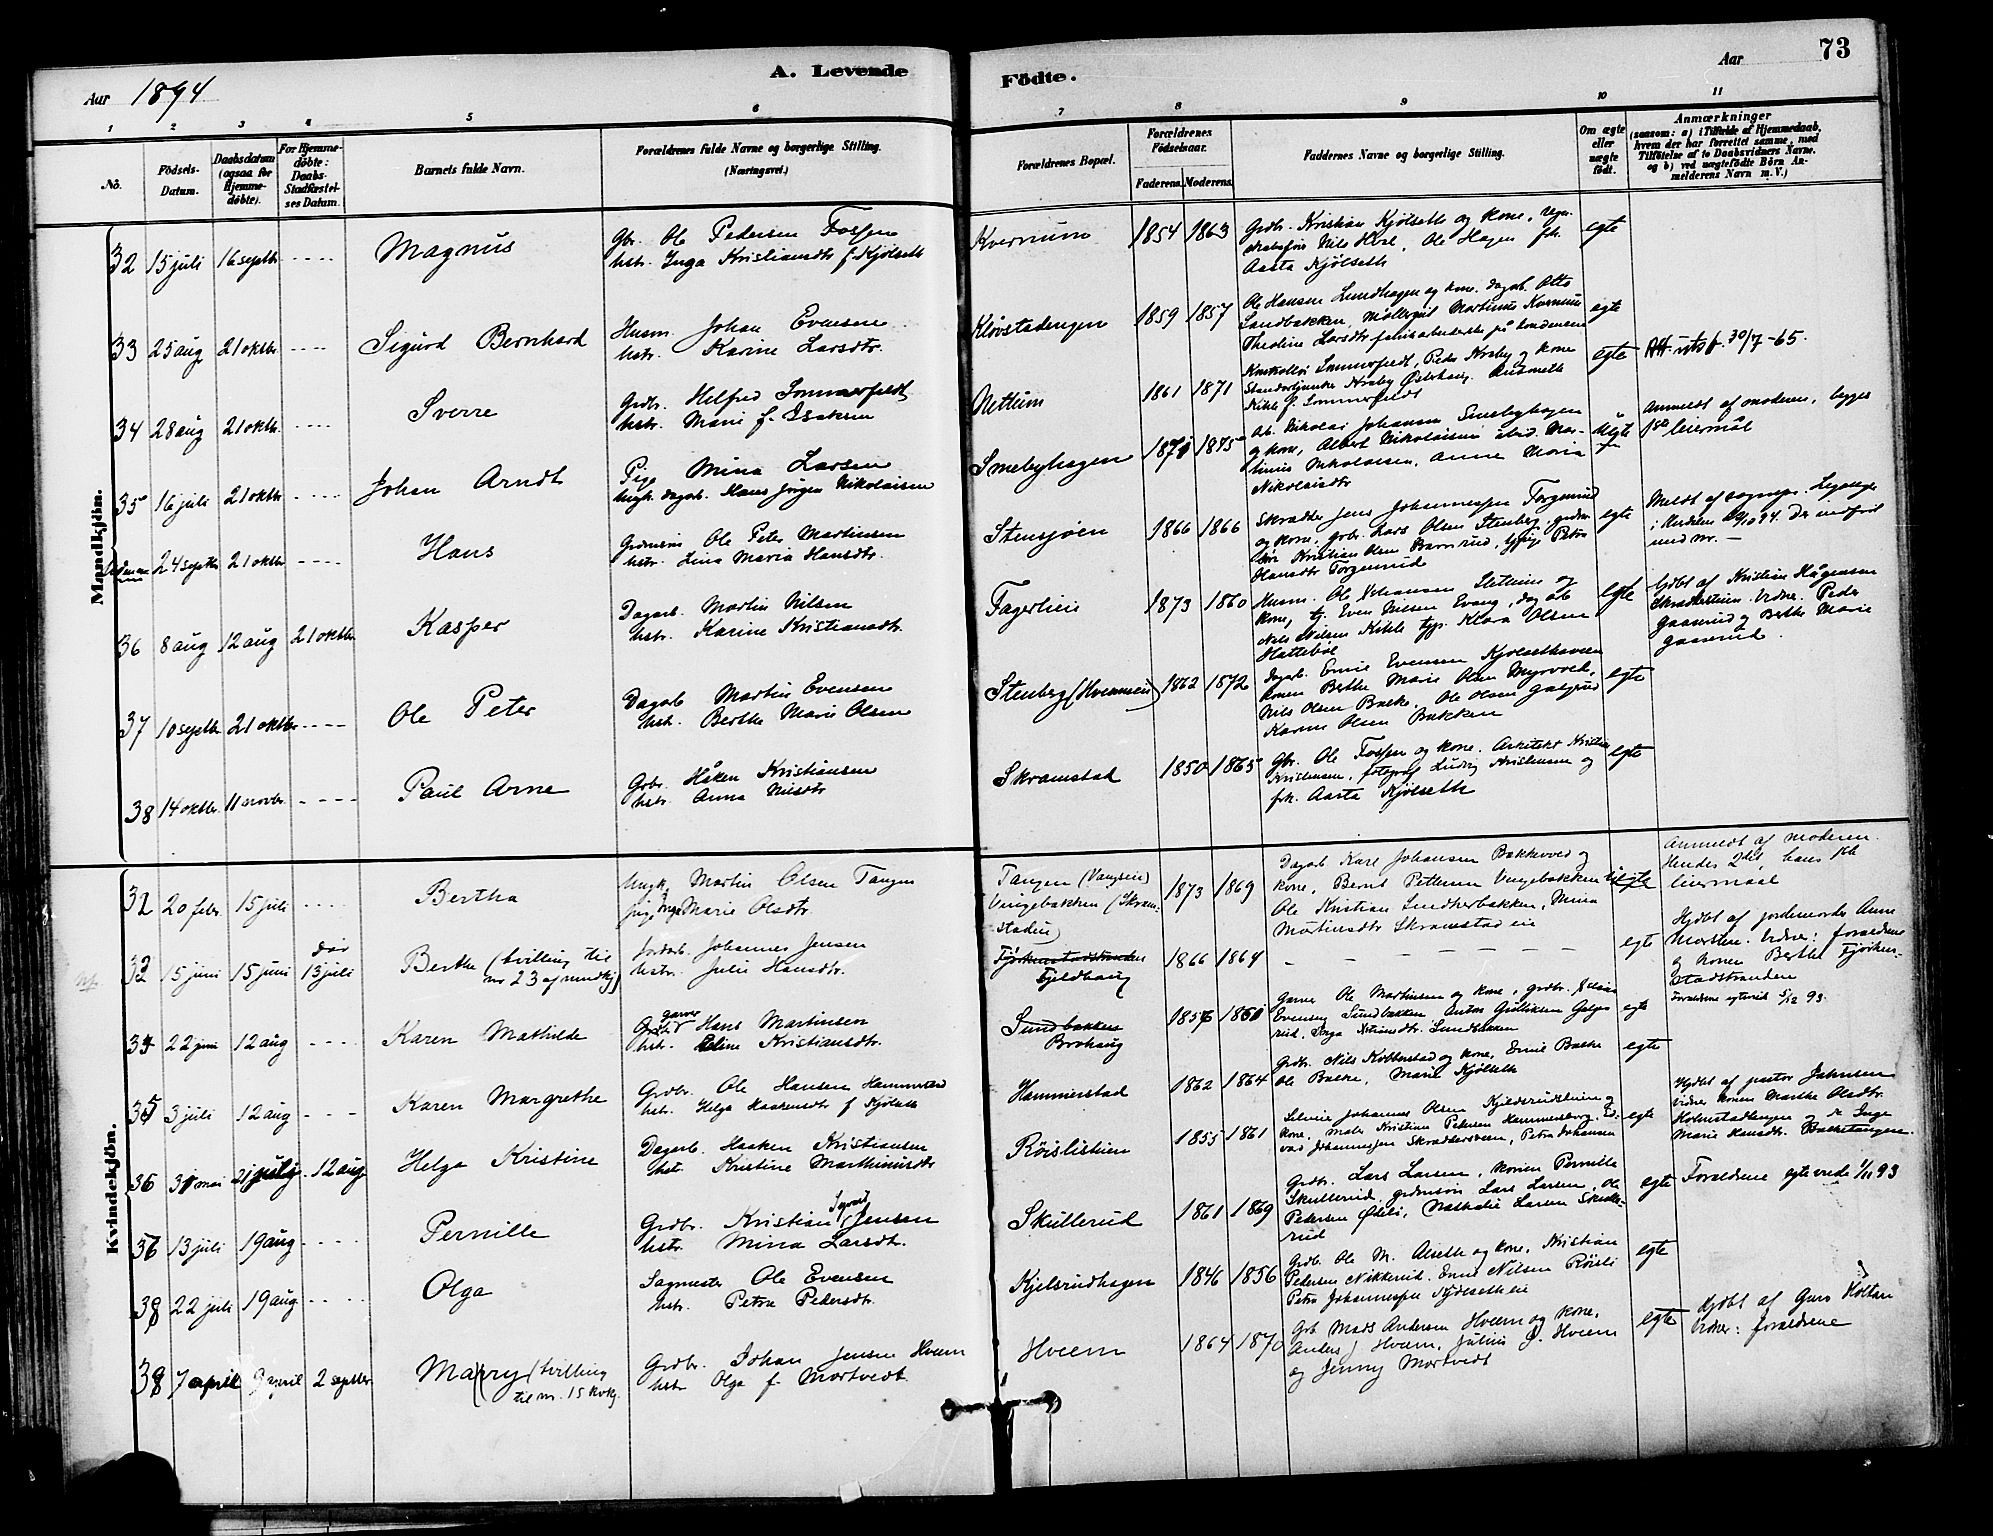 Aar 1894
A. Levende
Födte.
Aar
73
1 2 3 4 5 6 7 8 9 10 11
No.
Födsels-Datum.
Daabsdatum (ogsaa for Hjemme-döbte).
For Hjemme-döbte: Daabs-Stadfæstel-ses Datum.
Barnets fulde Navn.
Forældrenes fulde Navne og borgerlige Stilling.
(Næringsvei.)
Forældrenes Bopæl.
Forældrenes Födselsaar.
Faderens. Moderens.
Faddernes Navne og borgerlige Stilling.
Om ægte eller uægte födt.
Anmærkninger
(saasom: a) i Tilfælde af Hjemmedaab, hvem der har forrettet samme, med Tilföielse af to Daabsvidners Navne, og b) ved uægtefödte Börn An-melderens Navn m. V.)
Mandkjön.
32 15 juli 16 septbr ---- Magnus
Gbr. Ole Pedersen Fossen
hstr. Inga Kristiansdtr f. Kjölseth
Kvernum 1854 1863
Grdbr. Kristian Kjölseth og kone,
Nils Hoel, Ole Hagen frk.
Aasta Kjölseth
egte
33 25 aug 21 oktbr ---- Sigurd Bernhard
Husm. Johan Evensen
hstr. Karine Larsdtr.
Klövstadengen 1859 1857
Ole Hansen Lundhagen og kone, dagarb. Otto
Sandbakken, Möllergut Martinus Kvernum
Theoline Larsdtr
egte
34 28 aug 21 oktbr ---- Sverre
Grdbr. Helfred Sommerfeldt
hstr. Marie f. Isaksen
Nettum 1861 1871
Sommerfeldt, Peder Kraby og kone
f. Sommerfeldt
egte
Att. utst. 30/7 -65.
35 16 juli 21 oktbr ---- Johan Arndt
Pige Mina Larsen
Ungk. dagarb. Hans Jörgen Nikolaisen
Smebyhagen 1871 1875
Arb. Nikolai Johansen Smebyhagen
og kone, Albert Nikolaisen ibid. Mar-
tinus Nikolaisen, Anne Maria
Nikolaisdtr
Uegte
Anmeldt af moderen, begges
1ste leiermaal
24 septbr 21 oktbr ---- Hans
Grdmsön Ole Peter Martinsen
hstr. Lina Maria Hansdtr.
Stensjöen 1866 1866
Skrædder Jens Johannessen Torgunrud
og kone, grbr. Lars Olsen Stenberg,
Kristian Olsen Barnrud, Petra
Olausdtr Torgunrud
egte
Meldt af sogneprest
i Nordern
36 8 aug 12 aug 21 oktbr Kasper
Dagarb. Martin Nilsen
hstr. Karine Kristiansdtr.
Fagerlien 1873 1860
Husm. Ole Johansen Slettum og
kone, tj. Even Nilsen Evang, dagarb
Nils Nilsen Kihle typ. Klara Olsen
Hatteböl
egte
hjdöbt af Kristian Hågensen
Skrædderstuen. Vidner: Peder
Gaaserud og Berthe Marie
Gaaserud.
37 10 septbr 21 oktbr ---- Ole Peter
Dagarb Martin Evensen
hstr. Berthe Marie Olsen
Stenberg (Hvemeie) 1862 1872
Dagarb. Emil Evensen
konen Berthe Marie Olsen Myrvold,
Nils Olsen Balke, Ole Olsen Galgerud
Karen Olsen Bakken
egte
38 14 oktbr. 11 novbr. ---- Paul Arne
Grbr. Håken Kristiansen
hstr. Anna Nilsdtr
Skramstad 1850 1865
Gbr. Ole Fossen og kone. Arkitekt Kristian
Kristensen, fotograf Ludvig Kristensen og
frk. Aasta Kjölseth
egte
Kvindekjön.
32 20 febr. 15 juli ---- Bertha
Ungk. Martin Olsen Tangen
pige Inga Marie Olsdtr.
Tangen (Vangseie)
Vingebakken (Skram-
stadeie)
1873 1869
Dagarb Karl Johansen Bakkevold og
kone, Bernt Pettersen Vingebakken
Ole Kristian Smedherbakken, Mina
Martinsdtr Skramstadeie
uegte
Anmeldt af moderen.
Hendes 2det, hans 1ste
leiermaal
33 15 juni 15 juni döv 13 juli Berthe (tvilling til
nr 23 af mandkj)
Jordarb. Johannes Jensen
hstr. Julie Hansdtr.
Fjeldhaug 1866 1864
– – – – –
egte
Hjdöbt af jordemoder Anne
Morsten. Vidner: foreldrene
og konen Berthe Fjörken-
stadstranden
34 22 juni 12 aug ---- Karen Mathilde
Grdbr garver Hans Martinsen
hstr. Eline Kristiansdtr.
Sundbakken
Brohaug
1857 1861
Garver Ole Martinsen og kone, grdbr.
Evensen Sundbakken Anton Gulliksen Galge-
rud, Inga Kristiansdtr. Sundbakken
egte
Foreldrene egteviet 5/12 93.
35 3 juli 12 aug --- Karen Margrethe
Grdbr. Ole Hansen Hammerstad
hstr. Helga Haakensdtr f Kjölseth
Hammerstad 1862 1864
Grdbr. Nils Kobberstad og kone, Emil Balke
Ole Balke, Marie Kjölseth
egte
36 31 mai 21 juli 12 aug Helga Kristine
Dagarb. Haaken Kristiansen
hstr. Kristine Marthinusdtr
Röislistuen 1855 1861
Johannes Olsen Kjeldsrudstuen og
kone, maler Kristian Petersen Hammersborg, Ed-
vard Johannesen Skrædderstuen, Petra Johansen
egte
Hjdöbt af pastor Jahnsen
vidner konen Marthe Olsdtr.
Holmstadengen og Inga
Marie Hansdtr. Balketangen.
37 13 juli 19 aug ---- Pernille
Grdbr. Kristian Sigvard Jensen
hstr. Mina Larsdtr.
Skullerud 1861 1869
Grdbr. Lars Larsen, konen Pernille
Skullerud, grdmsön Lars Larsen, Ole
Petersen Ödeli, Nathalie Larsen Skulle-
rud
egte
Foreldrene egteviede 1/11 93
38 22 juli 19 aug ---- Olga
Sagmester Ole Evensen
hstr. Petra Pedersdtr.
Kjelsrudhagen 1846 1856
Grdb. Ole M. Alseth og kone, Kristian
Petersen Nikkerud. Emil Nilsen Röisli
Petra Johannessen
egte
39 7 april 9 april 2 septbr Mary (tvilling
til nr. 15 kvkj.
Grdbr. Johan Jensen Hveem
hstr Olga f. Mortvedt.
Hveem 1864 1870
Grb Mads Andersen Hveem og kone,
Anders J Hveem, Julius J. Hveem
og Jenny Mortvedt
egte
Hjdöbt af Guro Holtan
Vidner: foreldrene